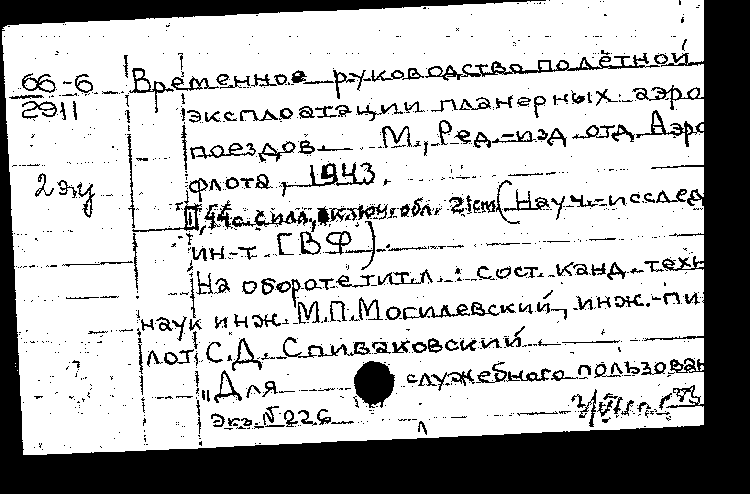 66-6 Временное руководство полётной
2911 эксплоатации планерных аэро
поездов. М., Ред.-изд. отд. Аэро
2 экз флота, 1943.
II, 44 с. с илл., включ. обл. 21 cm (Науч.-исслед
ин-т ГВФ).
На обороте тит. л.: сост. канд. техн
наук инж. М.П. Могилевский, инж.-пи
лот С.Д. Спиваковский.
„Для служебного пользован
Экз. № 226